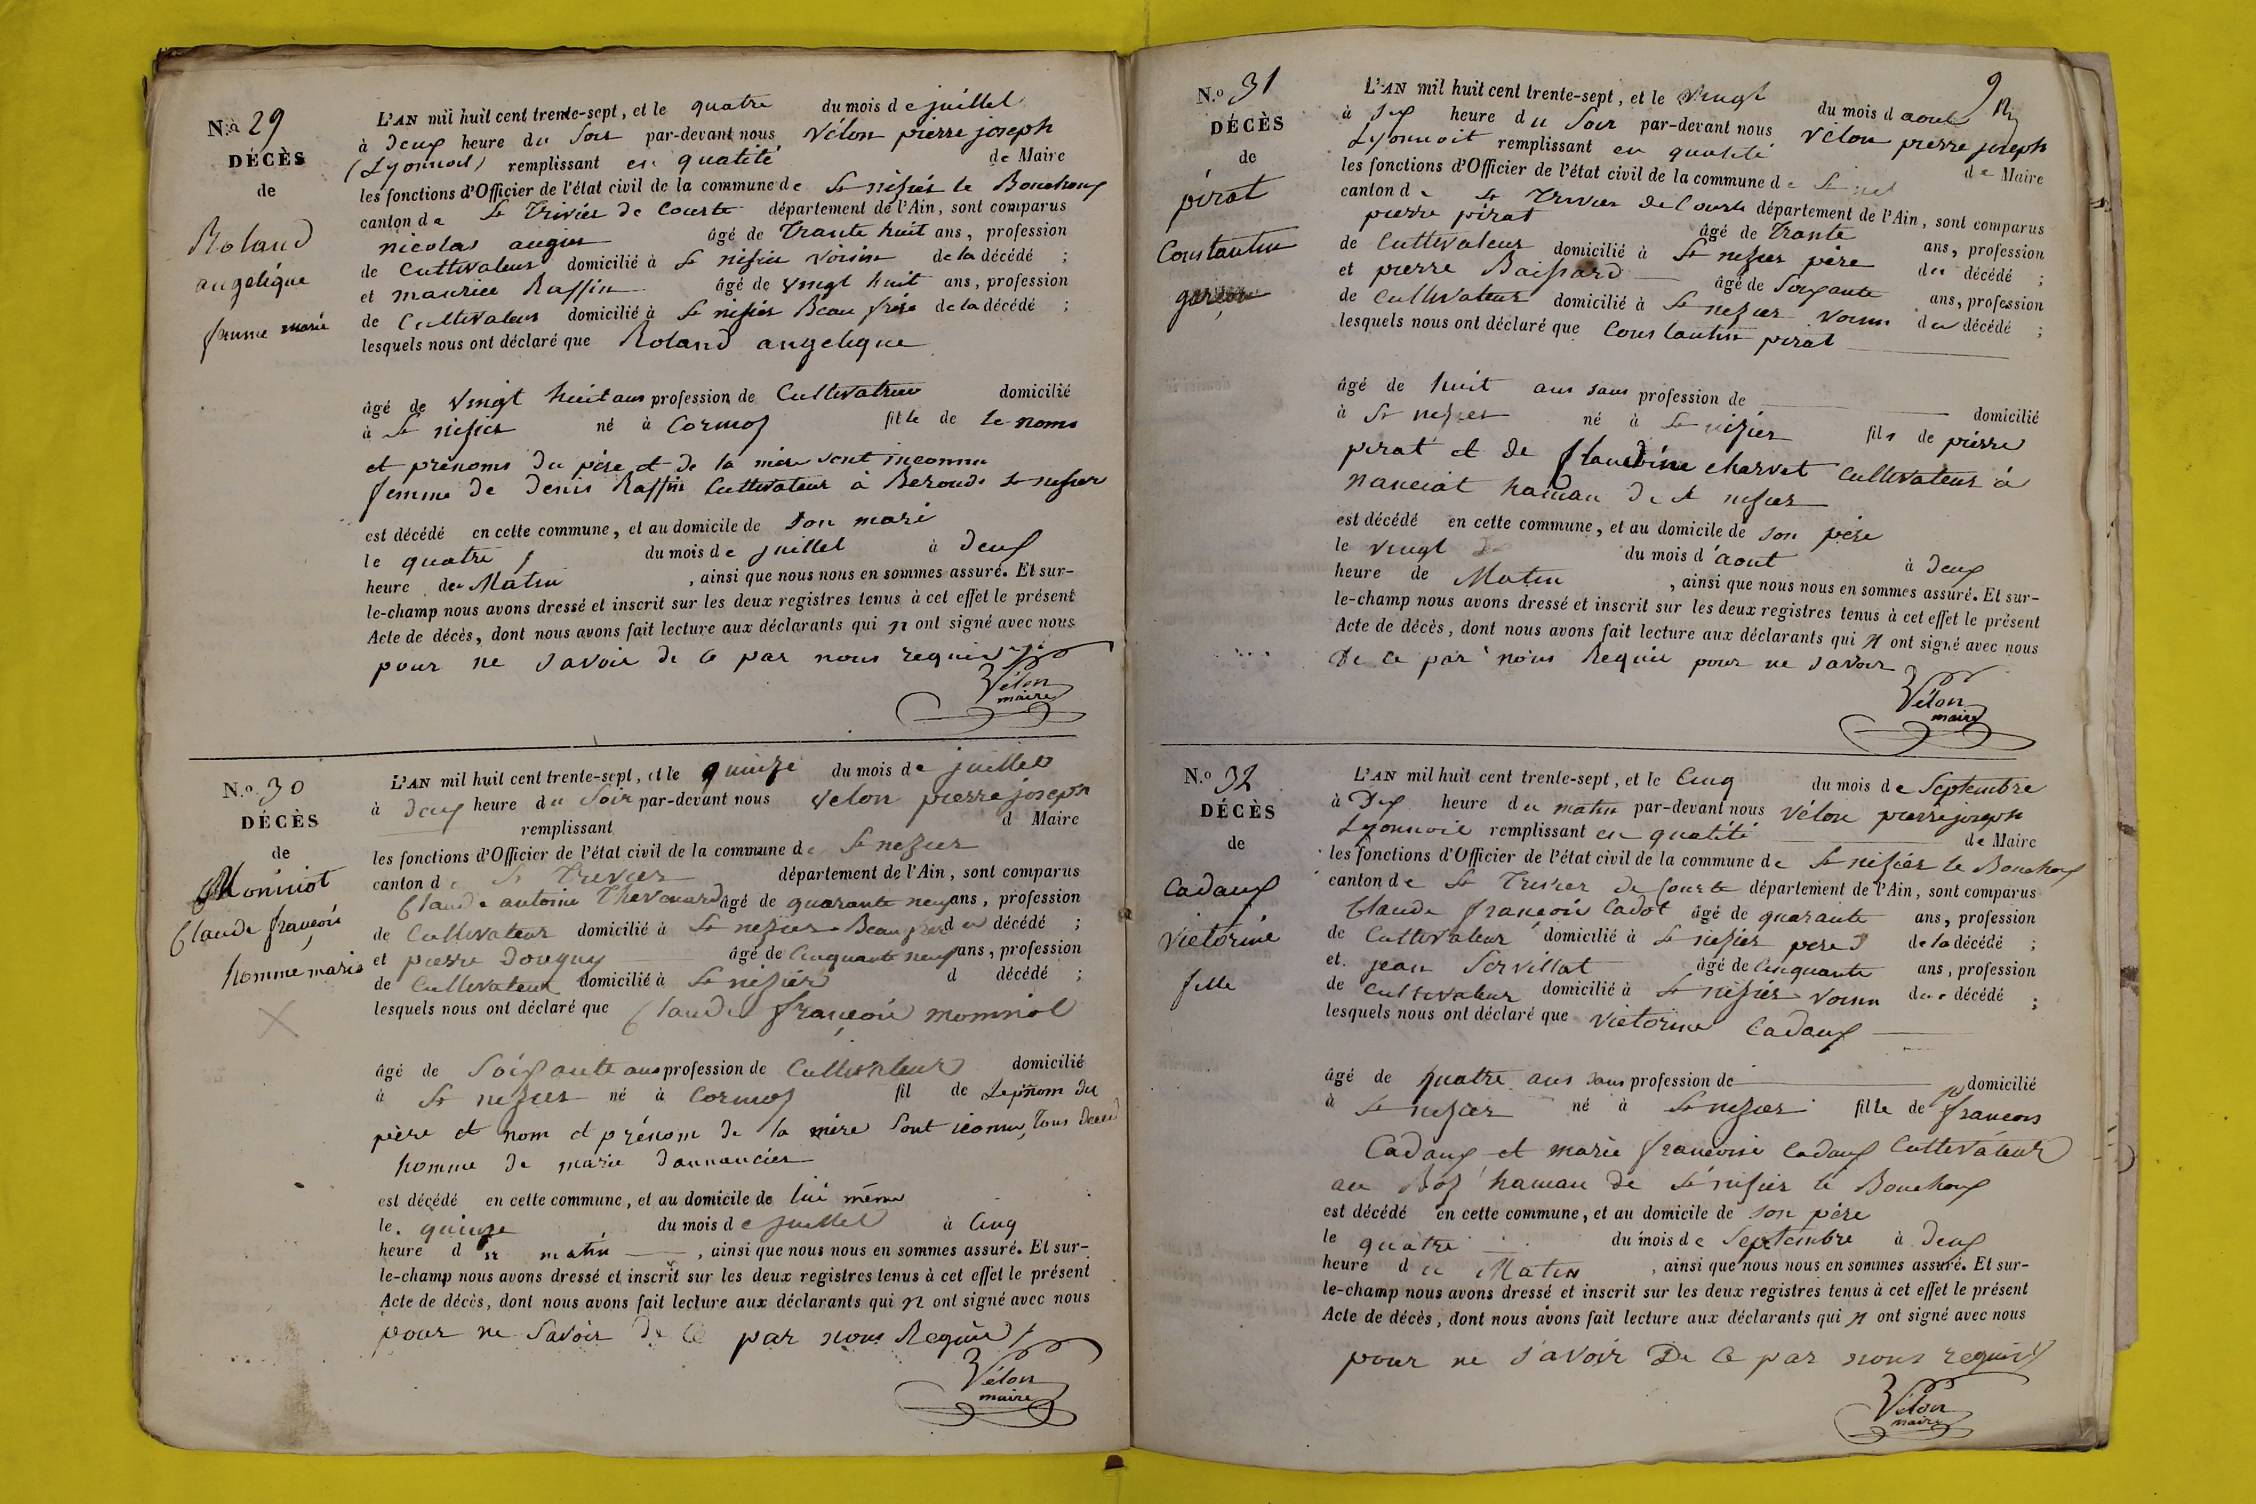 N.o 29
DÉCÈS
de
Roland
angelique
femme marié
L'AN mil huit cent trente-sept, et le quatre du mois de juillet
à deux heure du soir par-devant nous Vélon pierre joseph
(Lyonnois) remplissant en qualité de Maire
les fonctions d'Officier de l'état civil de la commune de St nizier le Bouchoux
canton de St Trivier de Courte département de l'Ain, sont comparus
nicolas augier âgé de Trante huit ans, profession
de Cultivateur domicilié à St nizier voisin de la décédé ;
et maurice Raffin âgé de vingt huit ans, profession
de Cultivateur domicilié à St nizier Beau frère de la décédé ;
lesquels nous ont déclaré que Roland angelique
âgé de vingt huit ans profession de Cultivatrice domicilié
à St nizier né à Cormoz fille de le noms
et prénoms du père et de la mère sont inconnu
femme de denis Raffin Cultivateur à St nizier
est décédé en cette commune, et au domicile de son mari
le quatre du mois de juillet à deux
heure de Matin , ainsi que nous nous en sommes assuré. Et sur-
le-champ nous avons dressé et inscrit sur les deux registres tenus à cet effet le présent
Acte de décès, dont nous avons fait lecture aux déclarants qui n ont signé avec nous
pour ne savoir de ce par nous requis
Vélon
maire
N.o 30
DÉCÈS
de
Monniot
Claude françois
homme marié
L'AN mil huit cent trente-sept, et le quinze du mois de juillet
à deux heure du soir par-devant nous Velon pierre joseph
remplissant d Maire
les fonctions d'Officier de l'état civil de la commune de St nezier
canton de St Trevier département de l'Ain, sont comparus
Claude antoine Thevenard âgé de quarante neuf ans, profession
de Cultivateur domicilié à St nezier Beau du décédé ;
et pierre Douguy âgé de Cinquante neuf ans, profession
de Cultivateur domicilié à St nizier d décédé ;
lesquels nous ont déclaré que Claude françois monniot
âgé de Soixante ans profession de Cultivateur domicilié
à St nezier né à Cormoz fil de Leprénom du
père et nom et prénom de la mère sont iconnu, tous
homme de marie dannancier
est décédé en cette commune, et au domicile de lui même
le quinze du mois de juillet à Cinq
heure du matin , ainsi que nous nous en sommes assuré. Et sur-
le-champ nous avons dressé et inscrit sur les deux registres tenus à cet effet le présent
Acte de décès, dont nous avons fait lecture aux déclarants qui n ont signé avec nous
pour ne Savoir de ce par nous Requis
Vélon
maire
9
N.o 31
DÉCÈS
de
pirat
Constantin
garçon
L'AN mil huit cent trente-sept, et le vingt du mois d aout
à heure du Soir par-devant nous Vélon pierre joseph
Lyonnoit remplissant en qualité de Maire
les fonctions d'Officier de l'état civil de la commune de St
canton de St Trivier de Courte département de l'Ain, sont comparus
pierre pirat âgé de Trante ans, profession
de Cultivateur domicilié à St nezier père du décédé ;
et pierre Baissard âgé de Soixante ans, profession
de Cultivateur domicilié à St nezier voisin du décédé ;
lesquels nous ont déclaré que Constantin pirat
âgé de huit ans sans profession de domicilié
à St nezier né à St nizier fils de pierre
pirat et de claudine charvet Cultivateur à
nanciat hamau de St nizier
est décédé en cette commune, et au domicile de son père
le vingt du mois d'aout à deux
heure de Matin , ainsi que nous nous en sommes assuré. Et sur-
le-champ nous avons dressé et inscrit sur les deux registres tenus à cet effet le présent
Acte de décès, dont nous avons fait lecture aux déclarants qui n ont signé avec nous
De ce par nous Requis pour ne savoir
Vélon
maire
N.o 32
DÉCÈS
de
Cadaux
Victorine
fille
L'AN mil huit cent trente-sept, et le Cinq du mois de Septembre
à Dix heure du matin par-devant nous Vélon pierre joseph
Lyonnois remplissant en qualité de Maire
les fonctions d'Officier de l'état civil de la commune de St nizier le Bouchoux
canton de St Trivier de Courte département de l'Ain, sont comparus
Claude françois Cadot âgé de quarante ans, profession
de Cultivateur domicilié à St nizier pere de la décédé ;
et jean Servillat âgé de Cinquante ans, profession
de Cultivateur domicilié à St nizier voisin du décédé ;
lesquels nous ont déclaré que Victorine Cadaux
âgé de quatre ans sans profession de domicilié
à St nezier né à St nezier fille de françois
Cadaux et marie françoise Cadaux Cultivateur
au hamau de St nizier le Bouchoux
est décédé en cette commune, et au domicile de son père
le quatre du mois de Septembre à deux
heure du Matin , ainsi que nous nous en sommes assuré. Et sur-
le-champ nous avons dressé et inscrit sur les deux registres tenus à cet effet le présent
Acte de décès, dont nous avons fait lecture aux déclarants qui n ont signé avec nous
pour ne savoir De ce par nous requis
Vélon
maire